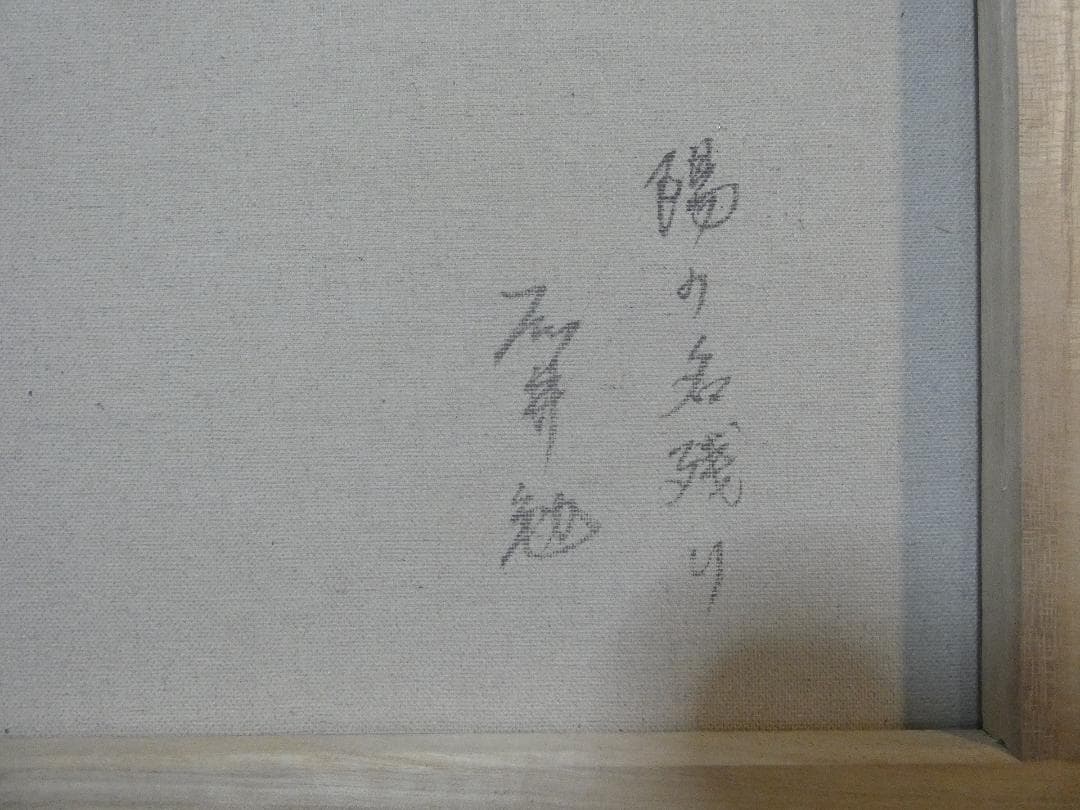 陽の名残り
石井勉